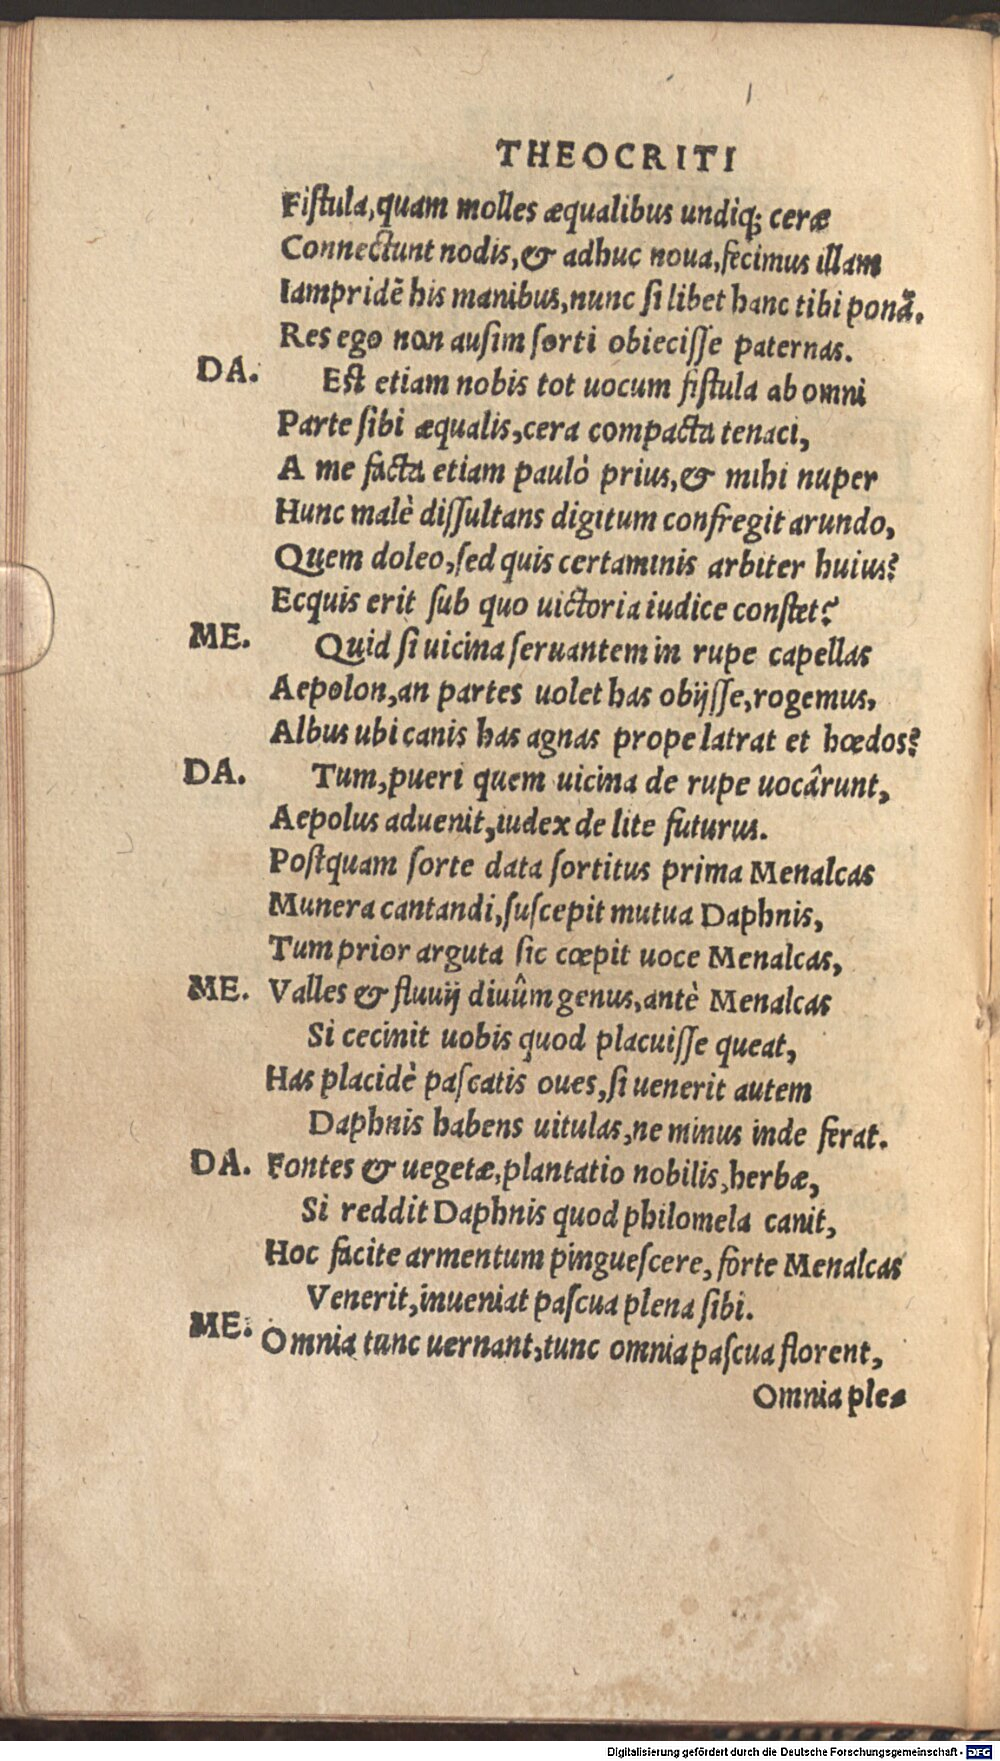 THEOCRITI
Fiſtula, quam molles æqualibus undiq; ceræ
Connectunt nodis, & adhuc noua, fecimus illam
Iampridẽ his manibus, nunc ſi libet hanc tibi ponã.
Res ego non auſim ſorti obieciſſe paternas.
DA. Eſt etiam nobis tot uocum fiſtula ab omni
Parte ſibi æqualis, cera compacta tenaci,
A me facta etiam paulò prius, & mihi nuper
Hunc malè diſſultans digitum confregit arundo,
Quem doleo, ſed quis certaminis arbiter huius?
Ecquis erit ſub quo uictoria iudice conſtet?
ME. Quid ſi uicina ſeruantem in rupe capellas
Aepolon, an partes uolet has obijſſe, rogemus,
Albus ubi canis has agnas prope latrat et hœdos?
DA. Tum, pueri quem uicina de rupe uocârunt,
Aepolus aduenit, iudex de lite futurus.
Poſtquam ſorte data ſortitus prima Menalcas
Munera cantandi, ſuſcepit mutua Daphnis,
Tum prior arguta ſic cœpit uoce Menalcas,
ME. Valles & fluuij diuûm genus, antè Menalcas
Si cecinit uobis quod placuiſſe queat,
Has placidè paſcatis oues, ſi uenerit autem
Daphnis habens uitulas, ne minus inde ferat.
DA. Fontes & uegetæ, plantatio nobilis, herbæ,
Si reddit Daphnis quod philomela canit,
Hoc facite armentum pingueſcere, forte Menalcas
Venerit, inueniat paſcua plena ſibi.
ME. Omnia tunc uernant, tunc omnia paſcua florent,
Omnia ple-
Digitalisierung gefördert durch die Deutsche Forschungsgemeinschaft - DFG